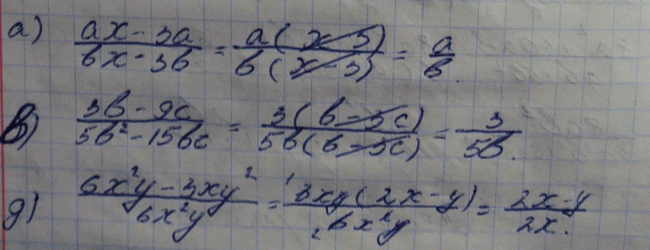 а) (ax - 3a)/(bx - 3b) = a(x - 3)/b(x - 3) = a/b.
в) (3b - 9c)/(5b² - 15bc) = 3(b - 3c)/5b(b - 3c) = 3/5b.
д) (6x²y - 3xy²)/6x²y = ¹3xy(2x - y)/₂6x²y = (2x - y)/2x.